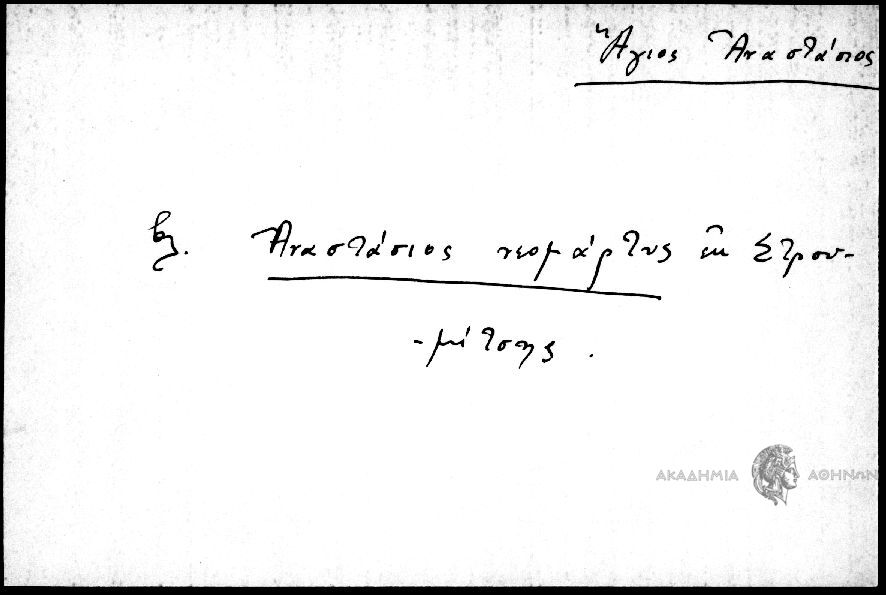 Ἅγιος Ἀναστάσιος
βλ. Ἀναστάσιος νεομάρτυς ἐκ Στρου-
-μίτσης.
ΑΚΑΔΗΜΙΑ ΑΘΗΝΩΝ